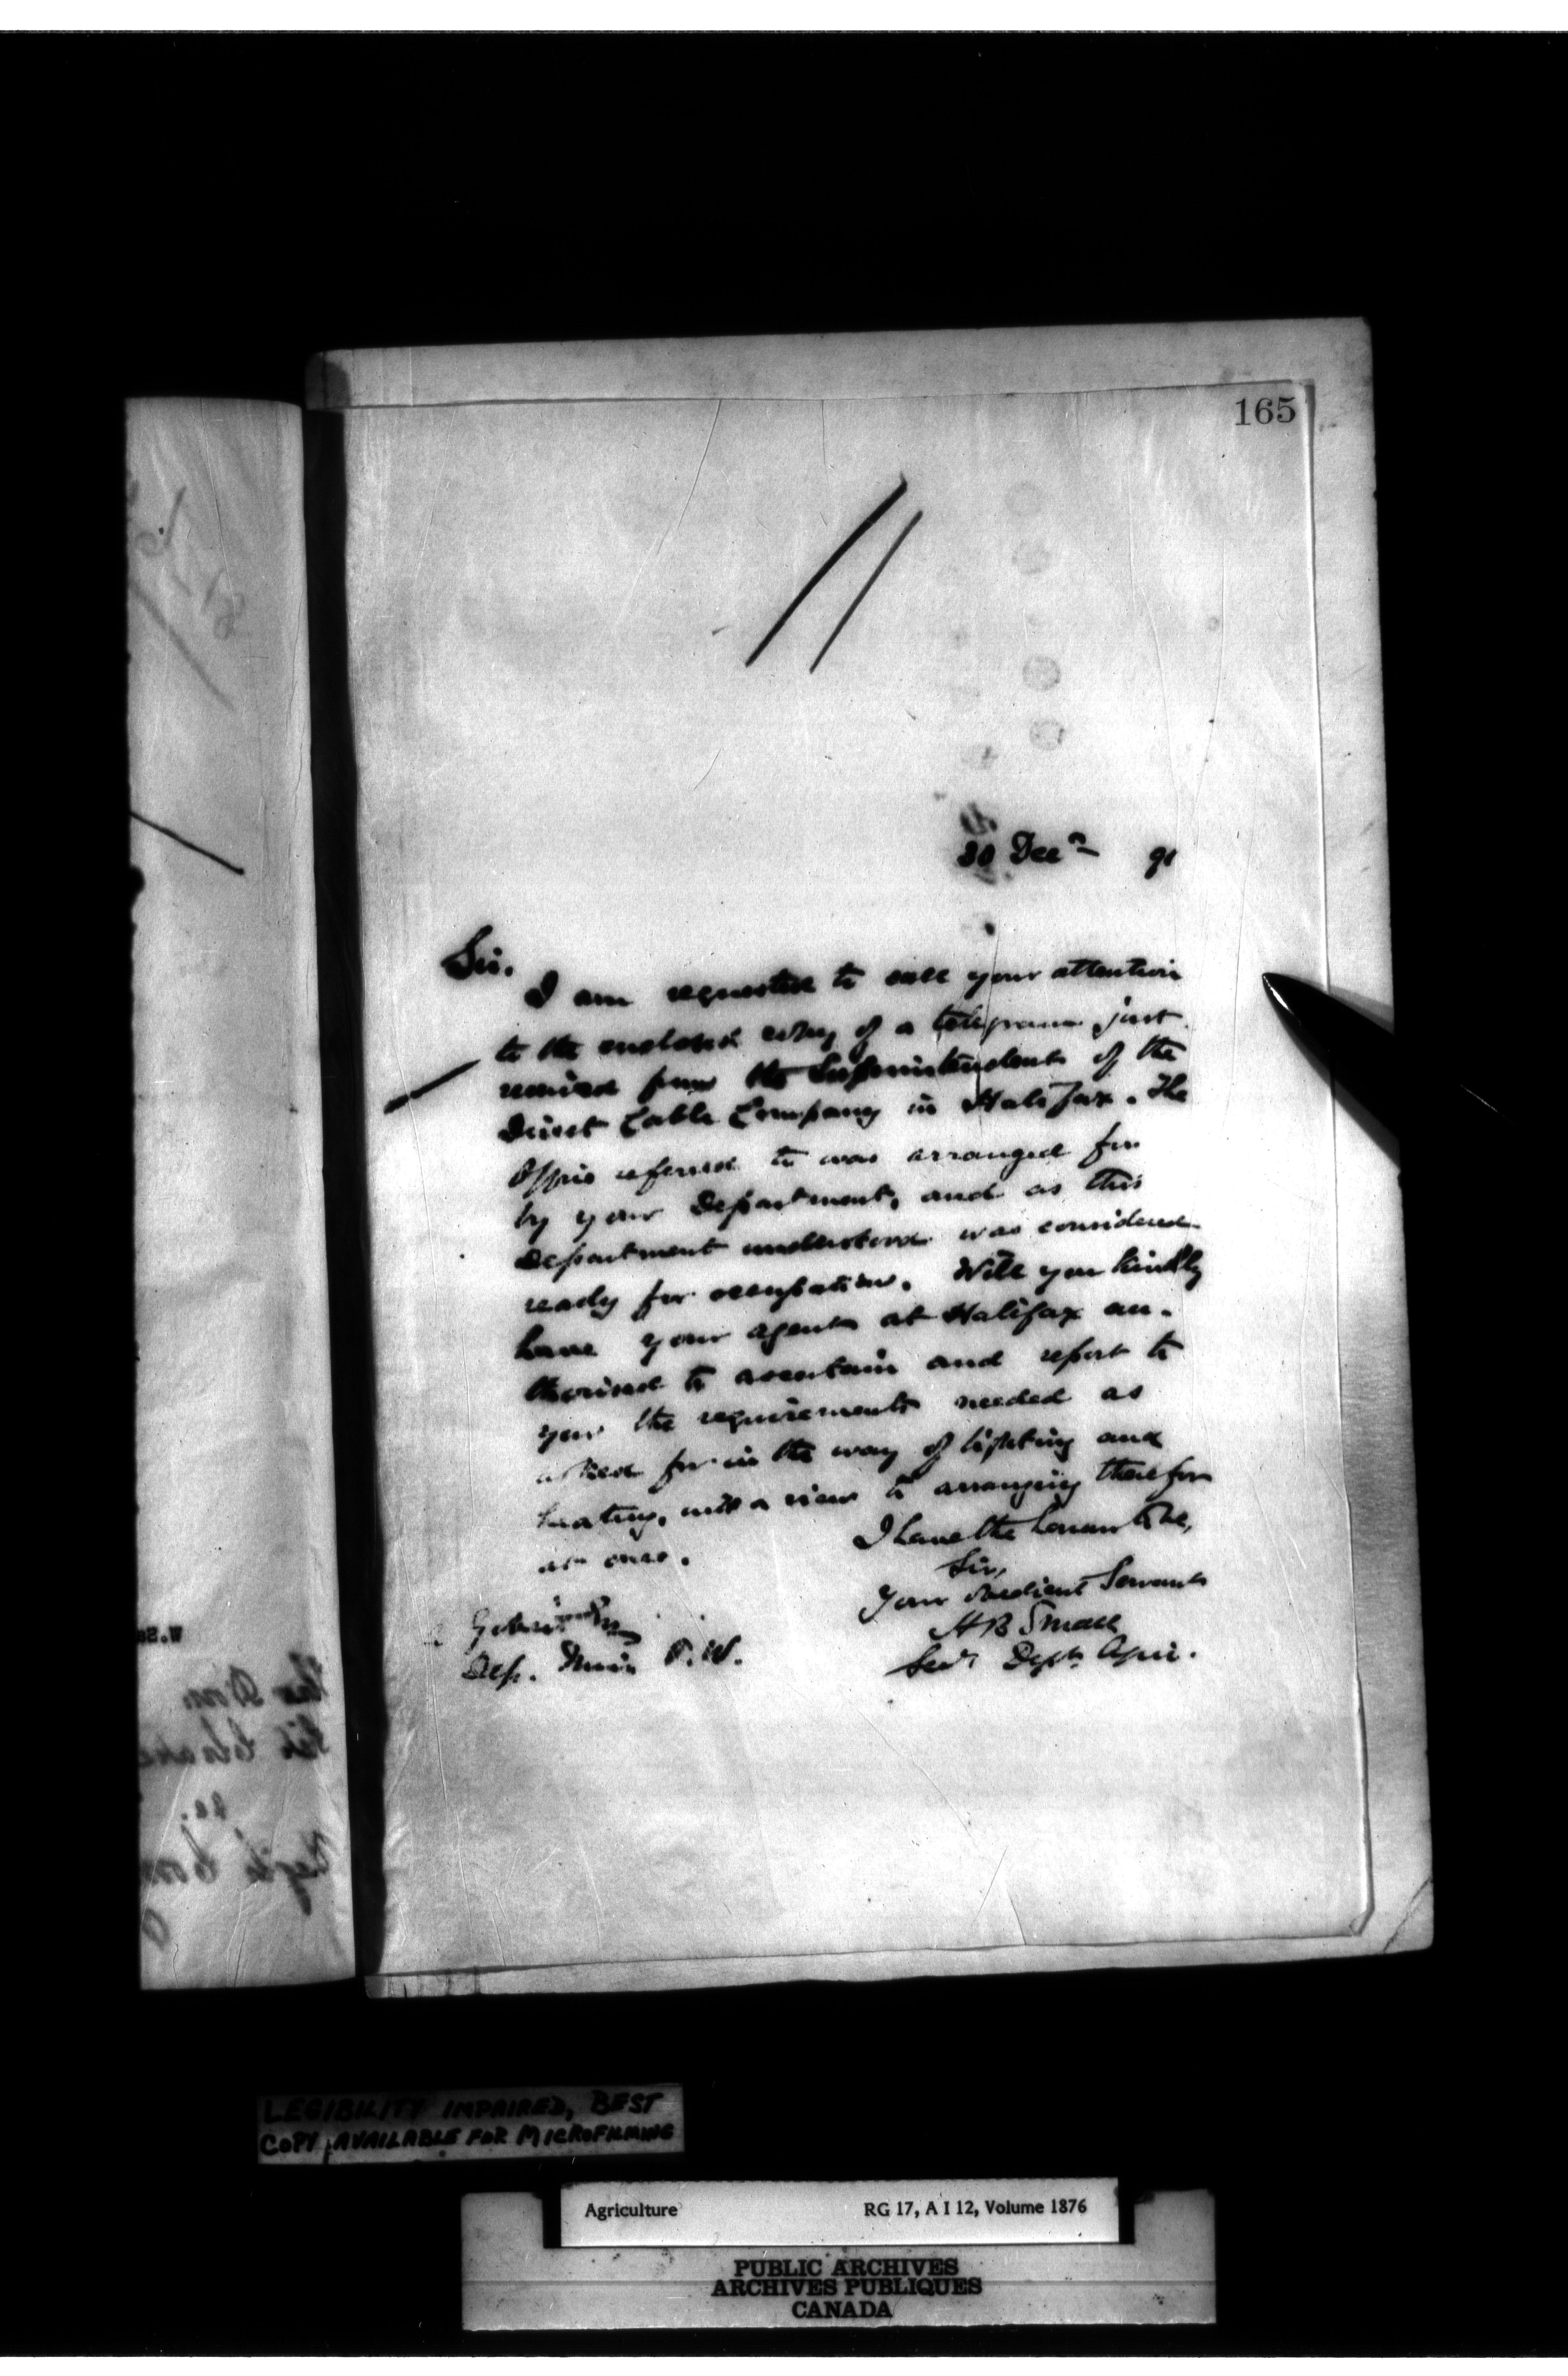 165
30 Decr 91
Sir.
I am requested to call your attention
to the enclosed copy of a telegram just
received from the Superintendent of the
Direct Cable Company in Halifax. The
Office referred to was arranged for
by your Department, and as this
Department understood was considered
ready for occupation. Will you kindly
have your agent at Halifax au-
thorised to ascertain and report to
you the requirements needed as
asked for in the way of lighting and
heating, with a view to arranging therefor
at once.
I have the honour to be,
Sir,
Your obedient Servant
H B Small
Secy Dept. Agri.
Dep. Minr P. W.
LEGIBILITY IMPAIRED, BEST
COPY AVAILABLE FOR MICROFILMING
Agriculture RG 17, A I 12, Volume 1876
PUBLIC ARCHIVES
ARCHIVES PUBLIQUES
CANADA